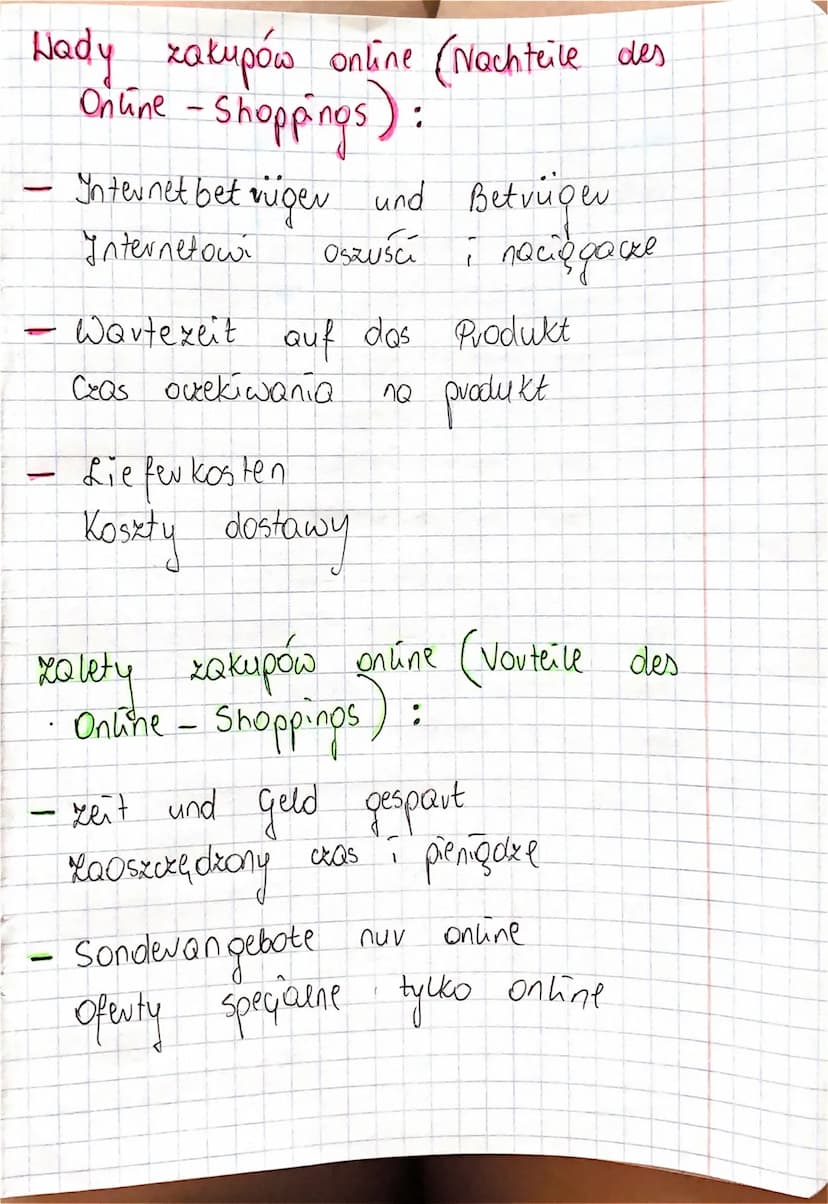 Wady zakupów online (Nachteile des
Online - Shoppings) :
- Internetbetrüger und Betrüger
Internetowi oszuści i naciągacze
- Wartezeit auf das Produkt
Czas oczekiwania na produkt
- Lieferkosten
Koszty dostawy
Zalety zakupów online (Vorteile des
Online - Shoppings) :
- Zeit und Geld gespart
Zaoszczędzony czas i pieniądze
- Sonderangebote nur online
Oferty specjalne tylko online